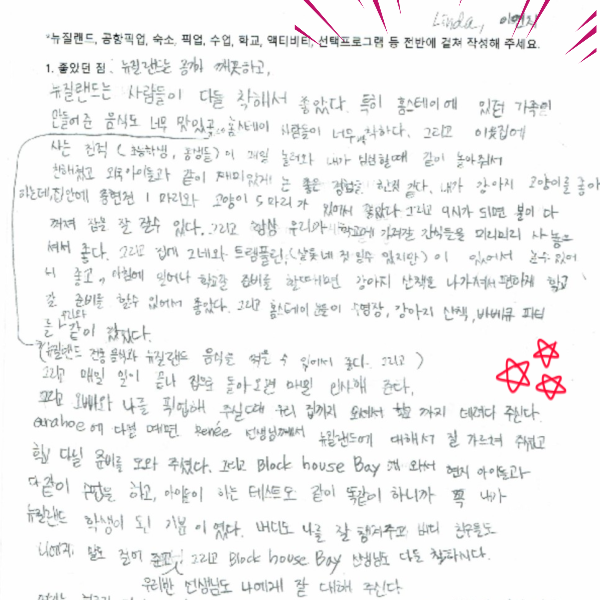 Linda, 이연지
*뉴질랜드, 공항픽업, 숙소, 픽업, 수업, 학교, 액티비티, 선택프로그램 등 전반에 걸쳐 작성해 주세요.
1. 좋았던 점 : 뉴질랜드는 공기가 깨끗하고,
뉴질랜드는 사람들이 다들 착해서 좋았다. 특히 홈스테이에 있던 가족이
만들어 준 음식도 너무 맛있고, 홈스테이 사람들이 너무 착하다. 그리고 이웃집에
사는 친척 (초등학생, 중생들)이 매일 놀러와 내가 심심할때 같이 놀아줘서
친해졌고 외국아이들과 같이 재미있게 노는 좋은 경험을 한것 같다. 내가 강아지 고양이를 좋아
하는데, 집안에 중형견 1마리와 고양이 5마리가 있어서 좋았다 그리고 9시가 되면 불이 다
꺼져 잠을 잘 잘수 있다. 그리고 항상 우리가 학교에 가져갈 간식들을 미리미리 사 놓으
셔서 좋다. 그리고 집에 그네와 트램폴린, (살짝 네 것 일수 있지만)이 있어서 놀수 있어
니 좋고, 아침에 일어나 학교갈 준비를 할때이면 강아지 산책로 나가셔서 편하게 학교
갈 준비를 할수 있어서 좋았다. 그리고 홈스테이 분이 수영장, 강아지 산책, 바베큐 파티
를 우리와 같이 갔었다.
(뉴질랜드 전통 음식과 뉴질랜드 음식을 먹을 수 있어서 좋다. 그리고)
그리고 매일 일이 끝나 집으로 돌아오면 매일 인사해 준다,
그리고 오빠와 나를 픽업해 주실때 우리 집까지 오셔서 학교 까지 데려다 주신다.
arahoe에 다닐 때면 Renée 선생님께서 뉴질랜드에 대해서 잘 가르쳐 주셨고
학교 다닐 준비를 도와 주셨다. 그리고 Block house Bay 에 와서 현지 아이들과
다 같이 수업을 하고, 아이들이 하는 테스트도 같이 똑같이 하니까 꼭 내가
뉴질랜드 학생이 된 기분이 었다. 버디도 나를 잘 챙겨주고, 버디 친구들도
나에게 말도 걸어 준고, 그리고 Block house Bay 선생님도 다들 착하시다.
우리반 선생님도 나에게 잘 대해 주신다